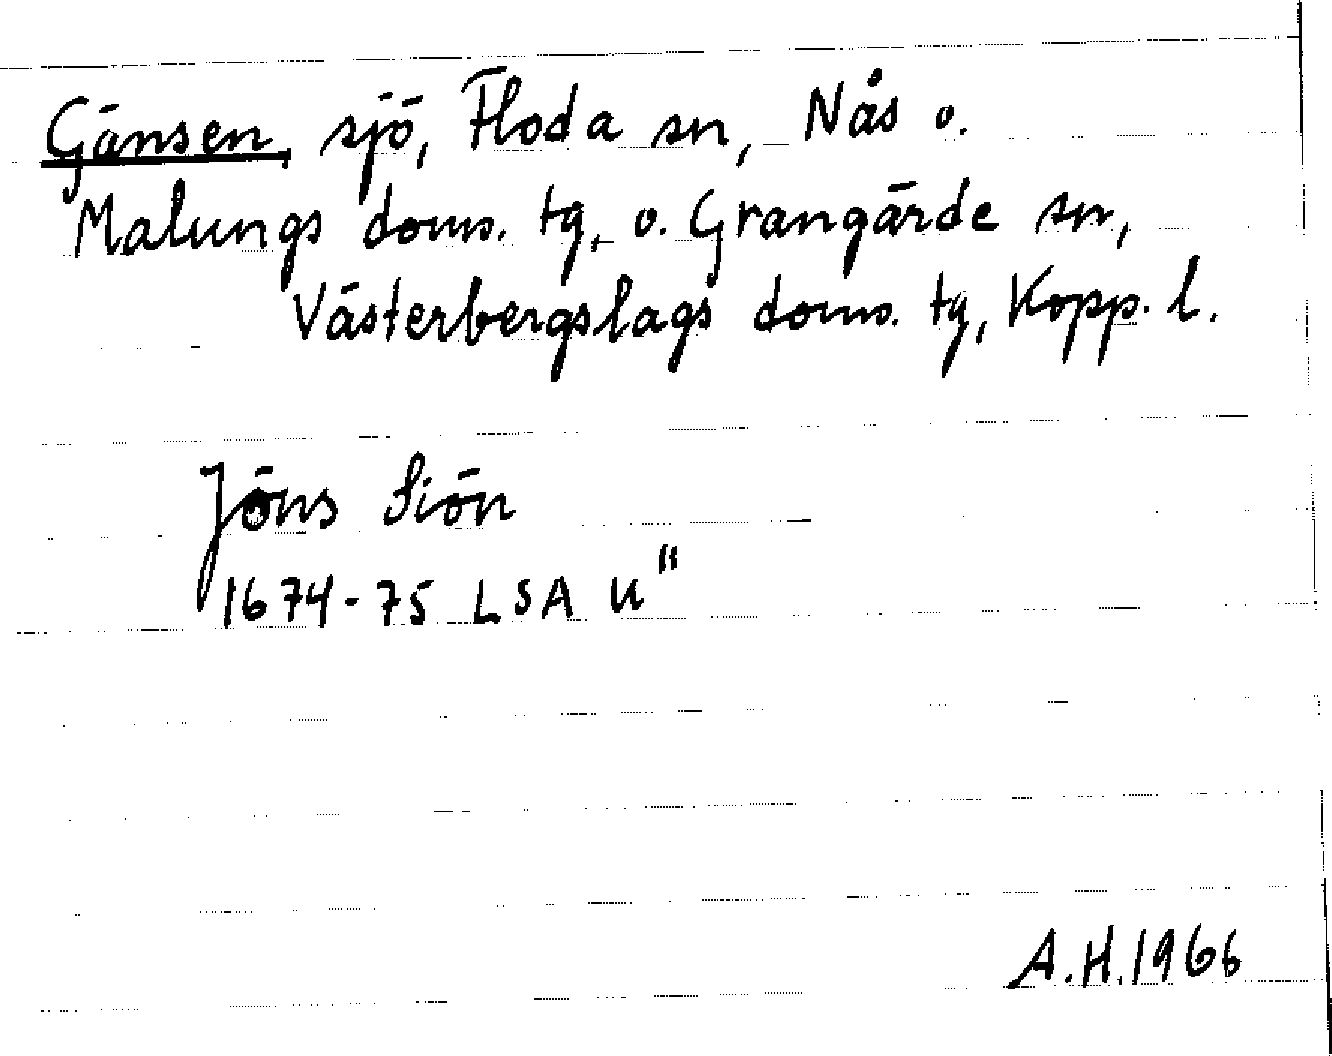 Gänsen, sjö, Floda sn, Nås o.
Malungs doms. tg, o. Grangärde sn,
Västerbergslags doms. tg, Kopp. l.
Jöns Siön
1674-75 LSA U"
A.H.1966